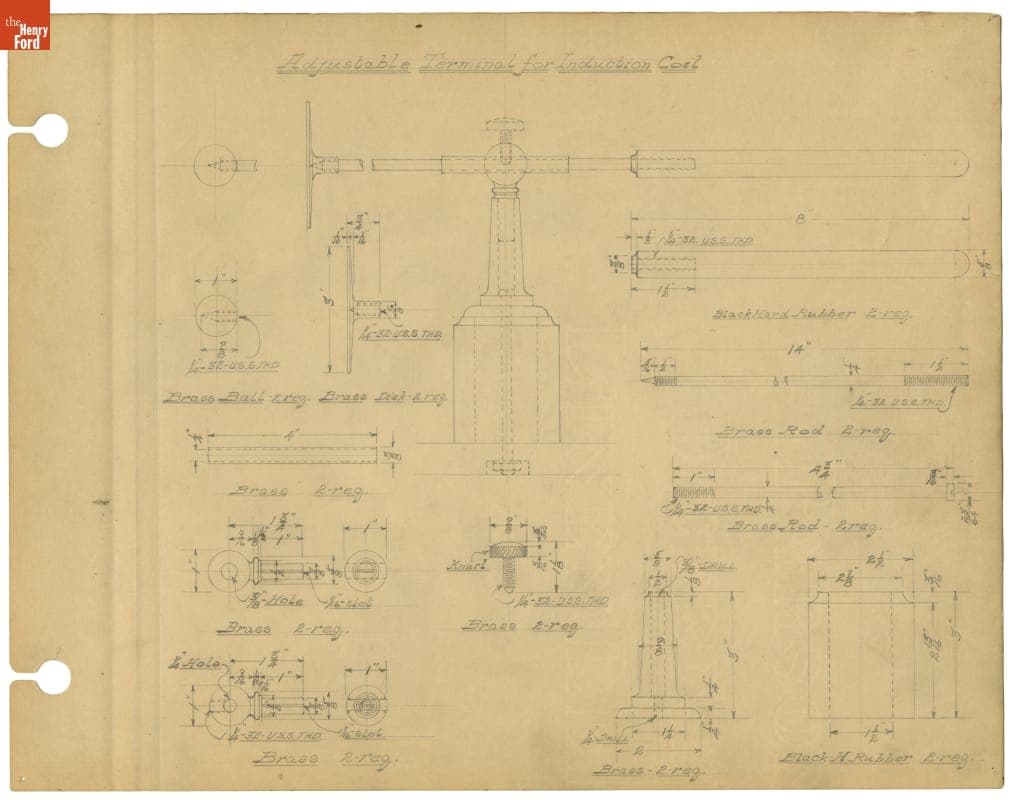 the
Henry
Ford
Adjustable Terminal for Induction Coil
8"
1/8
1/4-32-U.S.S.THD.
3/8
5/8
1 1/2"
Black Hard Rubber 2-req.
1"
3/8
1/4"-32-U.S.S.THD
Brass Ball-2req.
3"
3/8
1/4-32-U.S.S.THD.
Brass Disk-2req.
14"
1/2"
1/4
1 1/2"
1/4-32-U.S.S.THD.
Brass Rod 2-req.
4"
1/4
Brass 2-req.
4 3/4"
1"
1/4"-32-U.S.S.THD.
23/64
Brass Rod-2req.
1"
9/16
1"
1"
3/8-Hole
1/16-slot
Brass 2-req.
Knurl
1/4-32-U.S.S.THD.
Brass 2-req.
1/4 Hole
1"
9/16
1"
1"
1/4-32-U.S.S.THD
1/16-slot
Brass 2-req.
3/8-DRILL
3"
1/4
1/4-DRILL
1 1/4
2
Brass-2-req.
2 1/2"
2 1/8
2 13/16
3"
1 1/2"
Black H. Rubber 2-req.